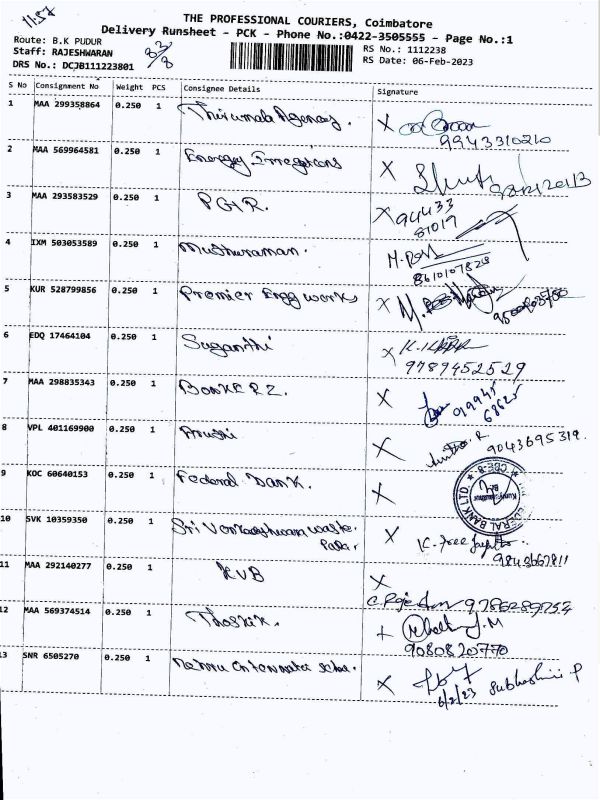 11:57
THE PROFESSIONAL COURIERS, Coimbatore
Delivery Runsheet - PCK - Phone No.:0422-3505555 - Page No.:1
Route: B.K PUDUR
Staff: RAJESHWARAN
DRS No.: DCJB111223801
RS No.: 1112238
RS Date: 06-Feb-2023
S No Consignment No Weight PCS Consignee Details Signature
1 MAA 299358864 0.250 1 Thirumala Agency.
X 9943310210
2 MAA 569964581 0.250 1 Energey Irregations
X
3 MAA 293583529 0.250 1 PGIR.
X 94433
81019
4 IXM 503053589 0.250 1 Muthuraman.
8610107828
5 KUR 528799856 0.250 1 Premier Engg works
X
6 EDQ 17464104 0.250 1 Suganthi
X
9789452529
7 MAA 298835343 0.250 1 BONKERZ.
X 
68625
8 VPL 401169900 0.250 1 Arushi
X 9043695319.
9 KOC 60640153 0.250 1 Federal Bank.
X FEDERAL BANK LTD
10 SVK 10359350 0.250 1 Sri Venkateshwara waste.
X
9843667811
11 MAA 292140277 0.250 1 KVB
X
9786289754
12 MAA 569374514 0.250 1 Thoshik.
9080820770
13 SNR 6505270 0.250 1
X
6/2/23 Subhashini P